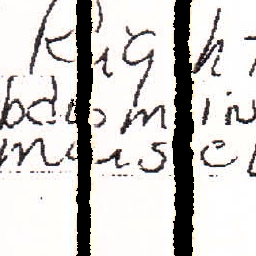 Right
bdomin
muscl